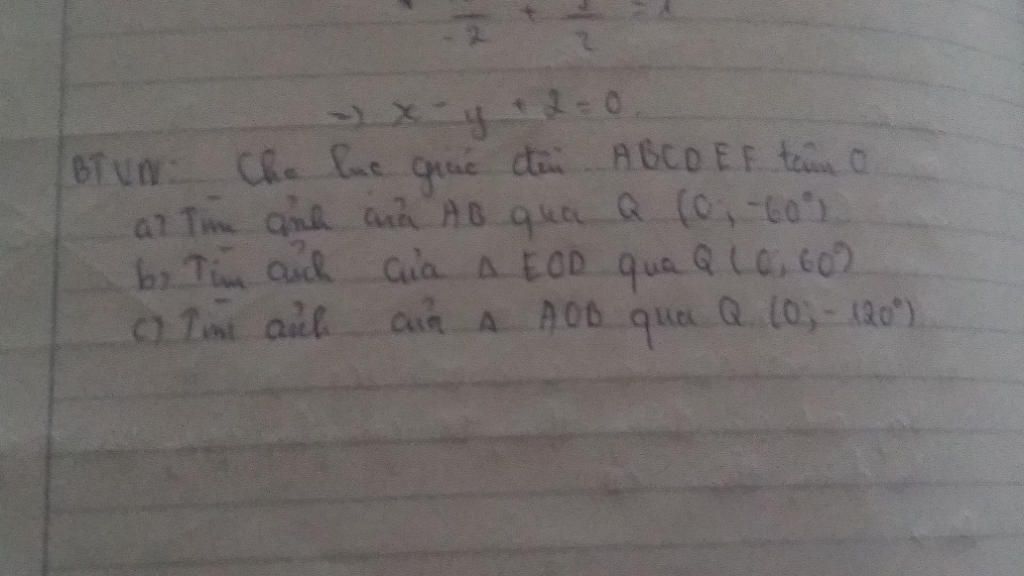 -2 + 2 = 1
=> x - y + 2 = 0
BTVN: Cho lục giác đều ABCDEF tâm O
a) Tìm ảnh của AB qua Q (O; -60°)
b) Tìm ảnh của Δ EOD qua Q (O, 60°)
c) Tìm ảnh của Δ AOB qua Q (O; -120°)